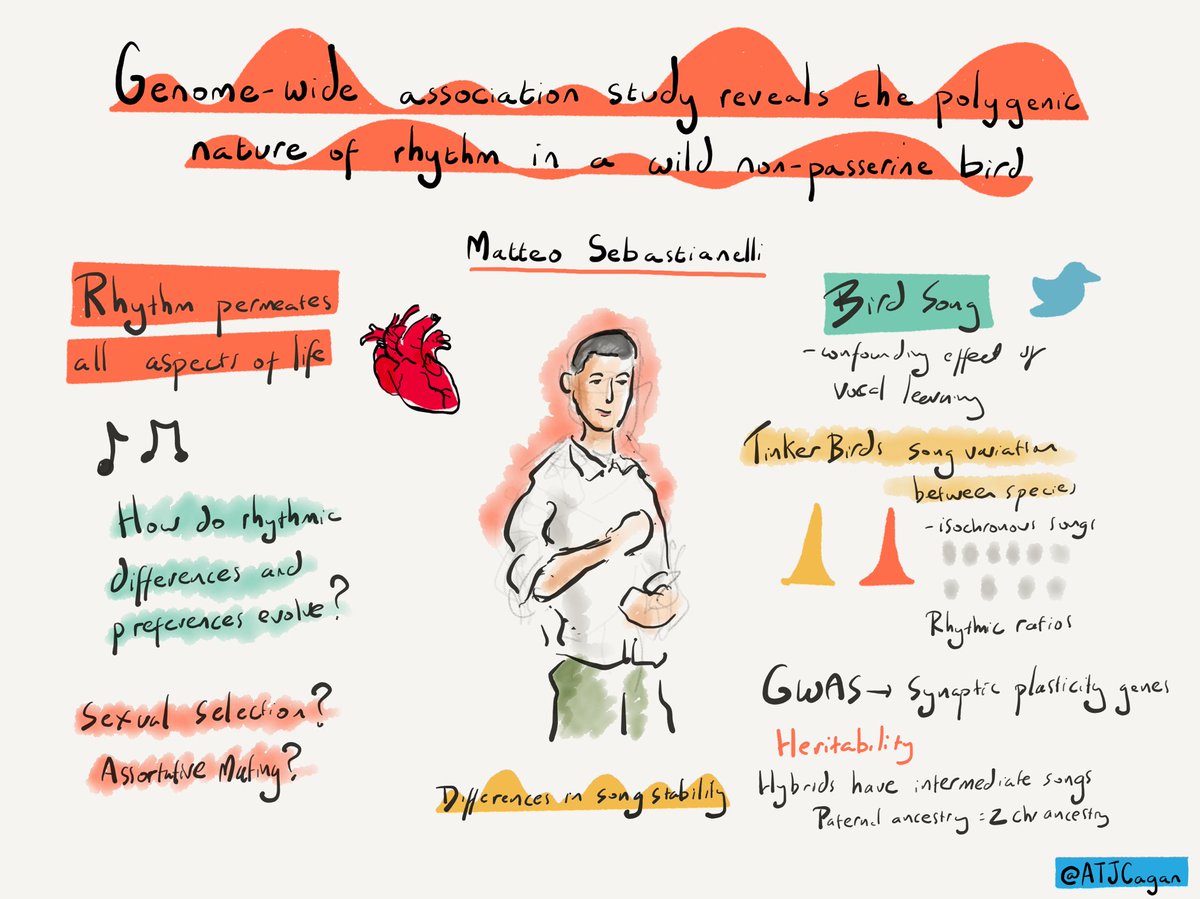 Genome-wide association study reveals the polygenic
nature of rhythm in a wild non-passerine bird
Matteo Sebastianelli
Rhythm permeates
all aspects of life
How do rhythmic
differences and
preferences evolve?
Sexual Selection?
Assortative Mating?
Differences in song stability
Bird Song
-confounding effect of
vocal learning
TinkerBirds song variation
between species
-isochronous songs
Rhythmic ratios
GWAS→ Synaptic plasticity genes
Heritability
Hybrids have intermediate songs
Paternal ancestry = Z chr ancestry
@ATJCagan